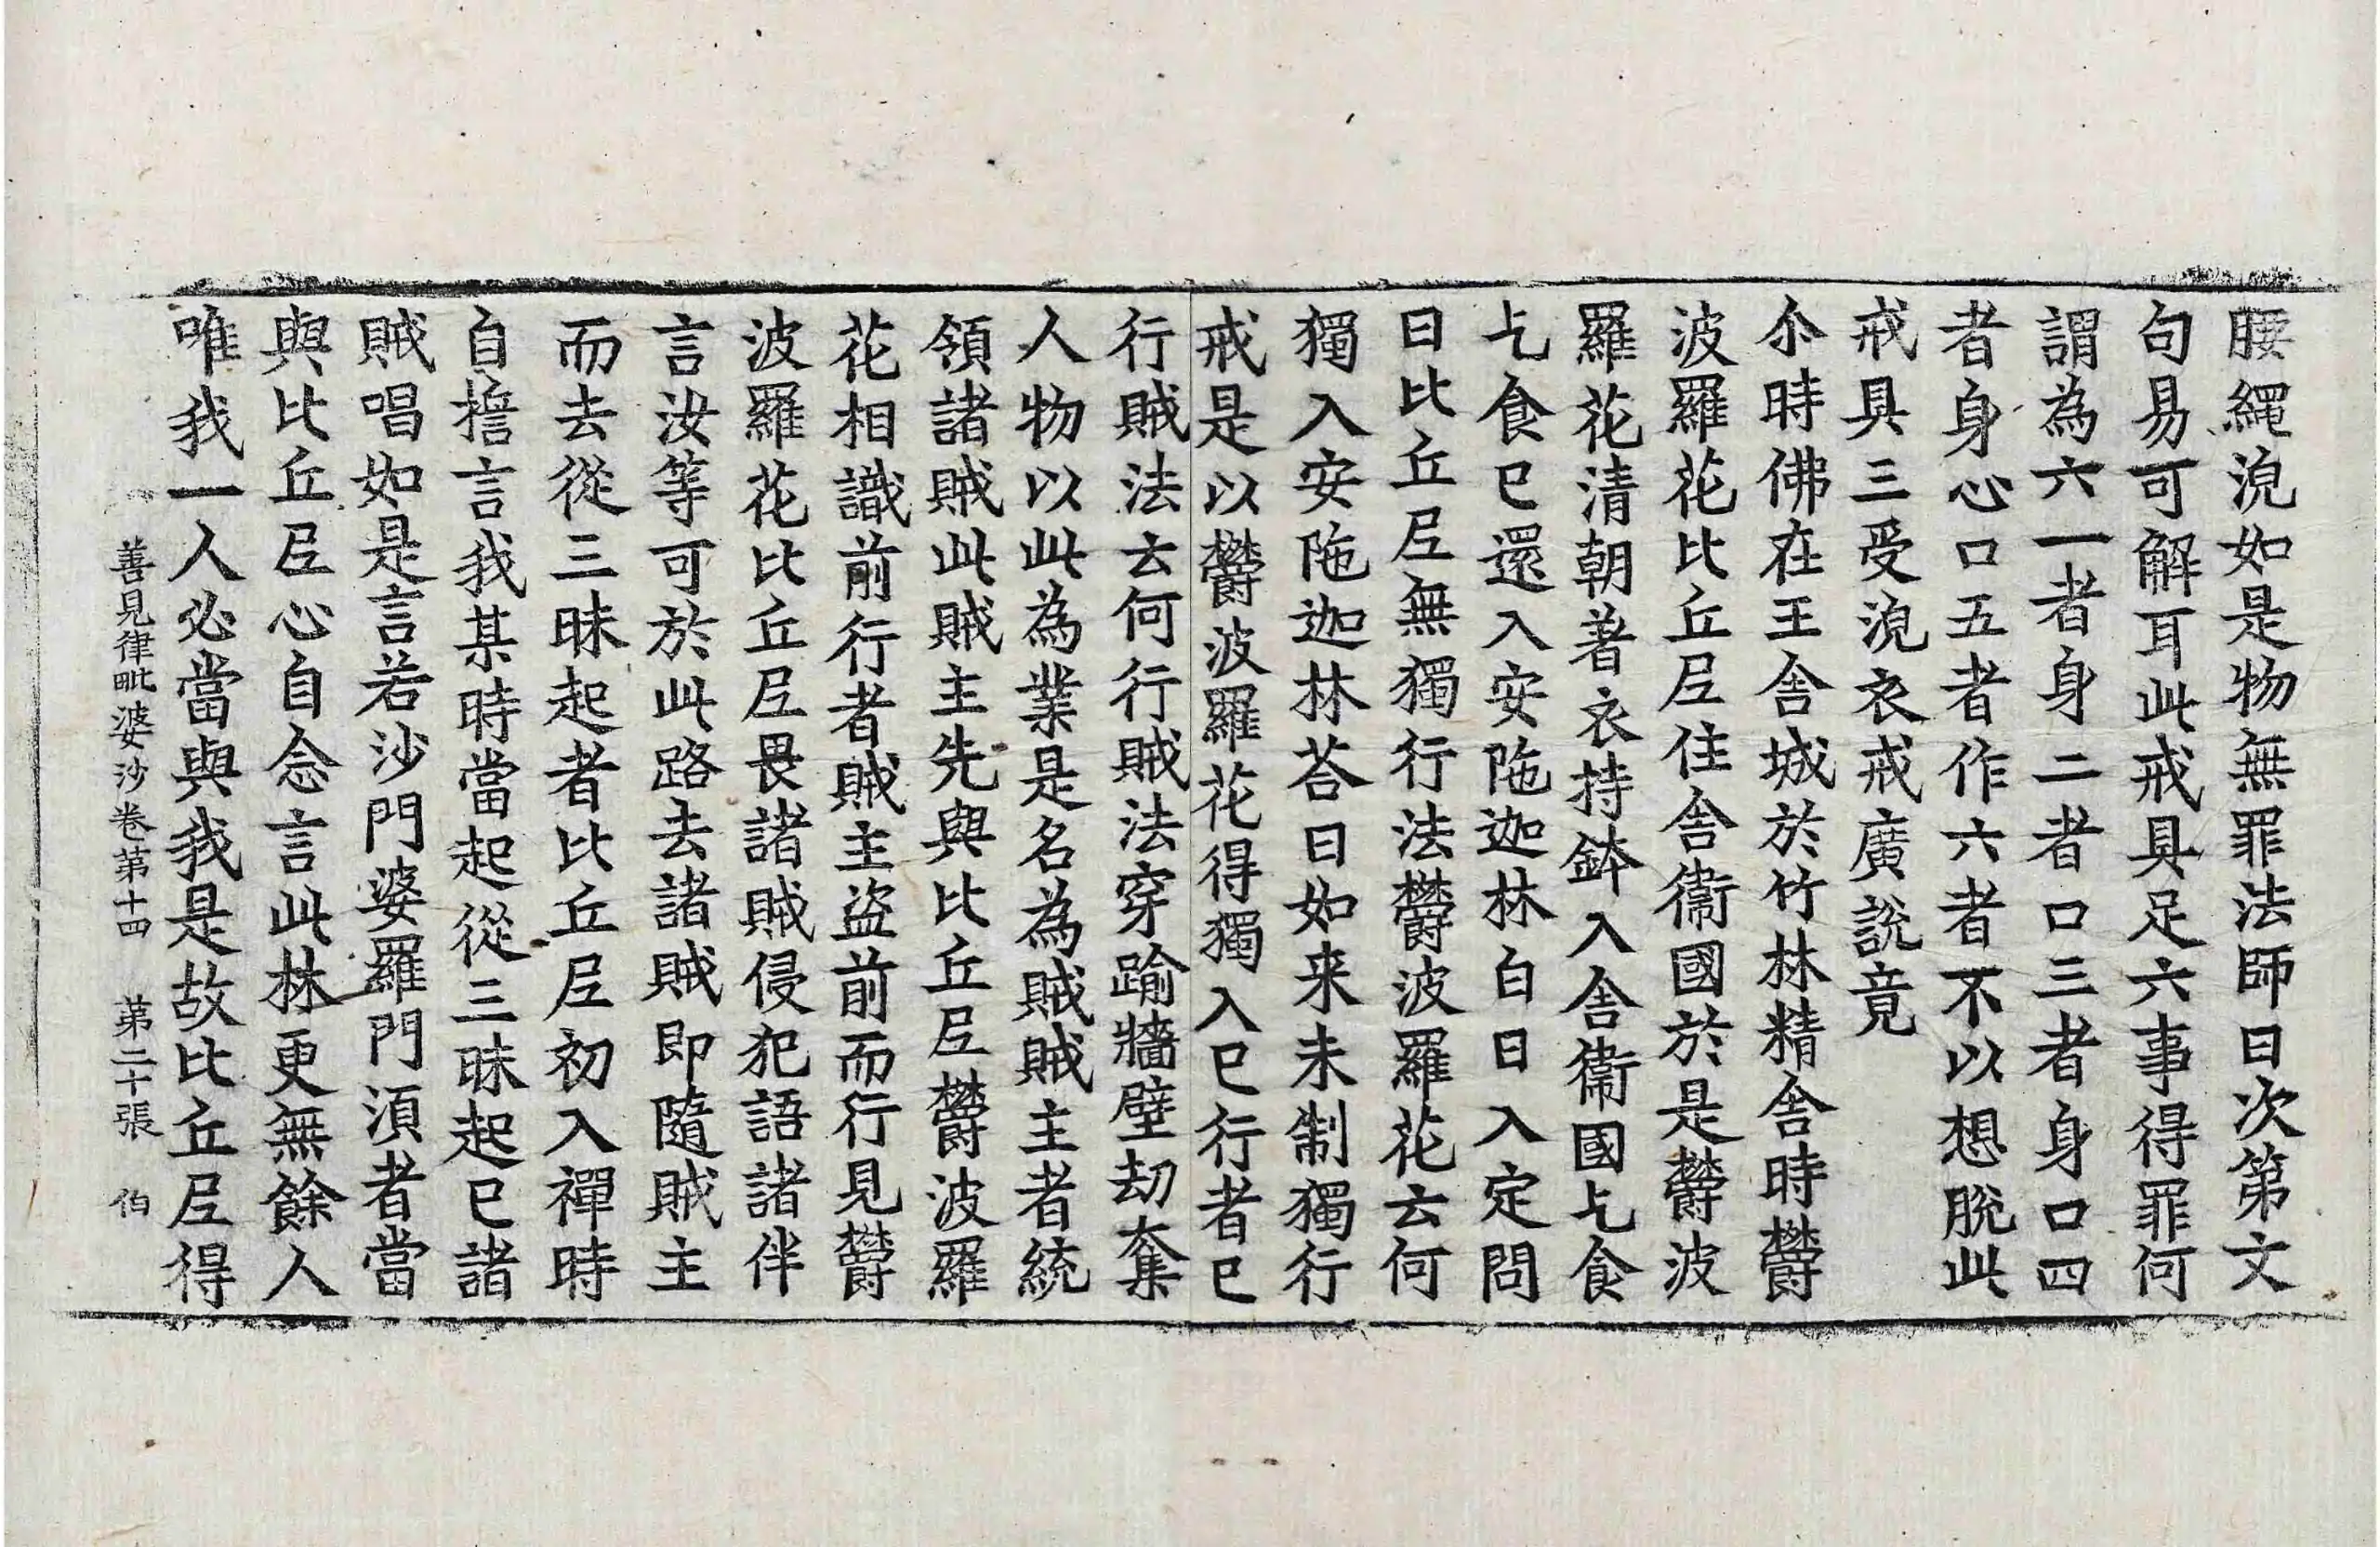 腰繩浼如是物無罪法師曰次第文
句易可解耳此戒具足六事得罪何
謂為六一者身二者口三者身口四
者身心口五者作六者不以想脫此
戒具三受浼衣戒廣說竟
尒時佛在王舍城於竹林精舍時欝
波羅花比丘𡰱住舍衞國於是欝波
羅花清朝著衣持鉢入舍衞國乞食
乞食已還入安陁迦林白日入定問
曰比丘𡰱無獨行法欝波羅花云何
獨入安陁迦林荅曰如来未制獨行
戒是以欝波羅花得獨入已行者已
行賊法云何行賊法穿踰牆壁劫奪
人物以此為業是名為賊賊主者統
領諸賊此賊主先與比丘𡰱欝波羅
花相識前行者賊主盗前而行見欝
波羅花比丘𡰱畏諸賊侵犯語諸伴
言汝等可於此路去諸賊即隨賊主
而去從三昧起者比丘𡰱初入禪時
自擔言我某時當起從三昧起已諸
賊唱如是言若沙門婆羅門湏者當
與比丘𡰱心自念言此林更無餘人
唯我一人必當與我是故比丘𡰱得
善見律毗婆沙卷第十四　第二十張　伯